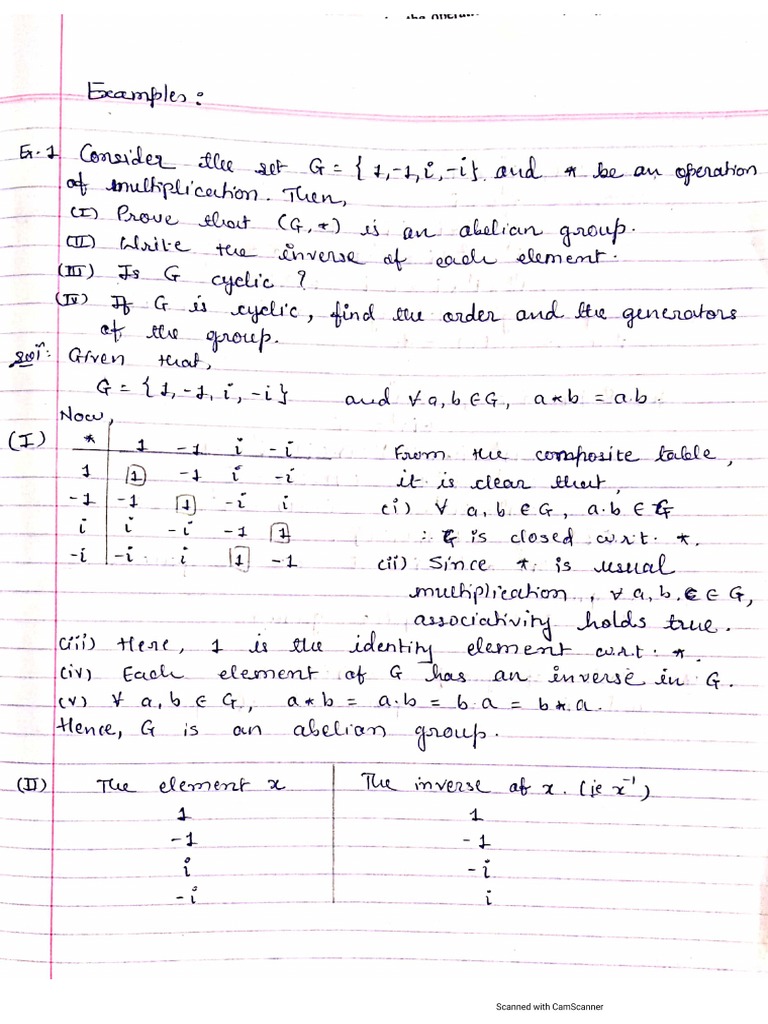 Examples:
Ex.1 Consider the set G = { 1,-1,i,-i} and * be an operation
of multiplication. Then,
(I) Prove that (G,*) is an abelian group.
(II) Write the inverse of each element.
(III) Is G cyclic ?
(IV) If G is cyclic, find the order and the generators
of the group.
Solⁿ: Given that,
G = { 1, -1, i, -i } and ∀ a, b ∈ G, a * b = a.b.
Now,
(I) * 1 -1 i -i From the composite table,
1 1 -1 i -i it is clear that,
-1 -1 1 -i i (i) ∀ a, b ∈ G, a.b ∈ G
i i -i -1 1 ∴ G is closed w.r.t. *.
-i -i i 1 -1 (ii) Since * is usual
multiplication, ∀ a, b, c ∈ G,
associativity holds true.
(iii) Here, 1 is the identity element w.r.t. *.
(iv) Each element of G has an inverse in G.
(v) ∀ a, b ∈ G, a * b = a.b = b.a = b * a.
Hence, G is an abelian group.
(II) The element x The inverse of x. (ie x⁻¹)
1 1
-1 -1
i -i
-i i
Scanned with CamScanner